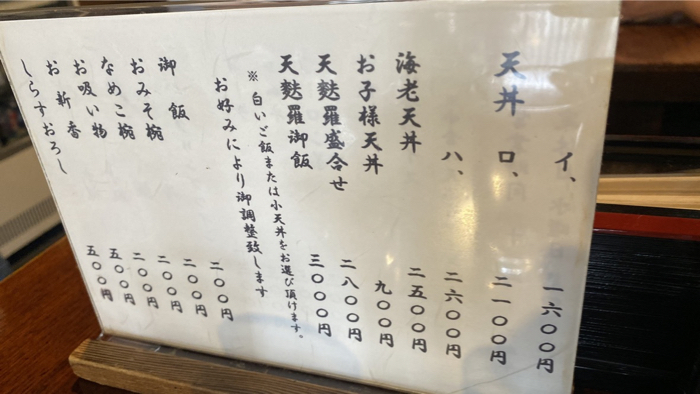 イ、 一六〇〇円
天丼 ロ、 二一〇〇円
ハ、 二六〇〇円
海老天丼 二五〇〇円
お子様天丼 九〇〇円
天麩羅盛合せ 二八〇〇円
天麩羅御飯 三〇〇〇円
※白いご飯または小天丼をお選び頂けます。
お好みにより御調整致します
御飯 二〇〇円
おみそ椀 二〇〇円
なめこ椀 二〇〇円
お吸い物 二〇〇円
お新香 五〇〇円
しらすおろし 五〇〇円